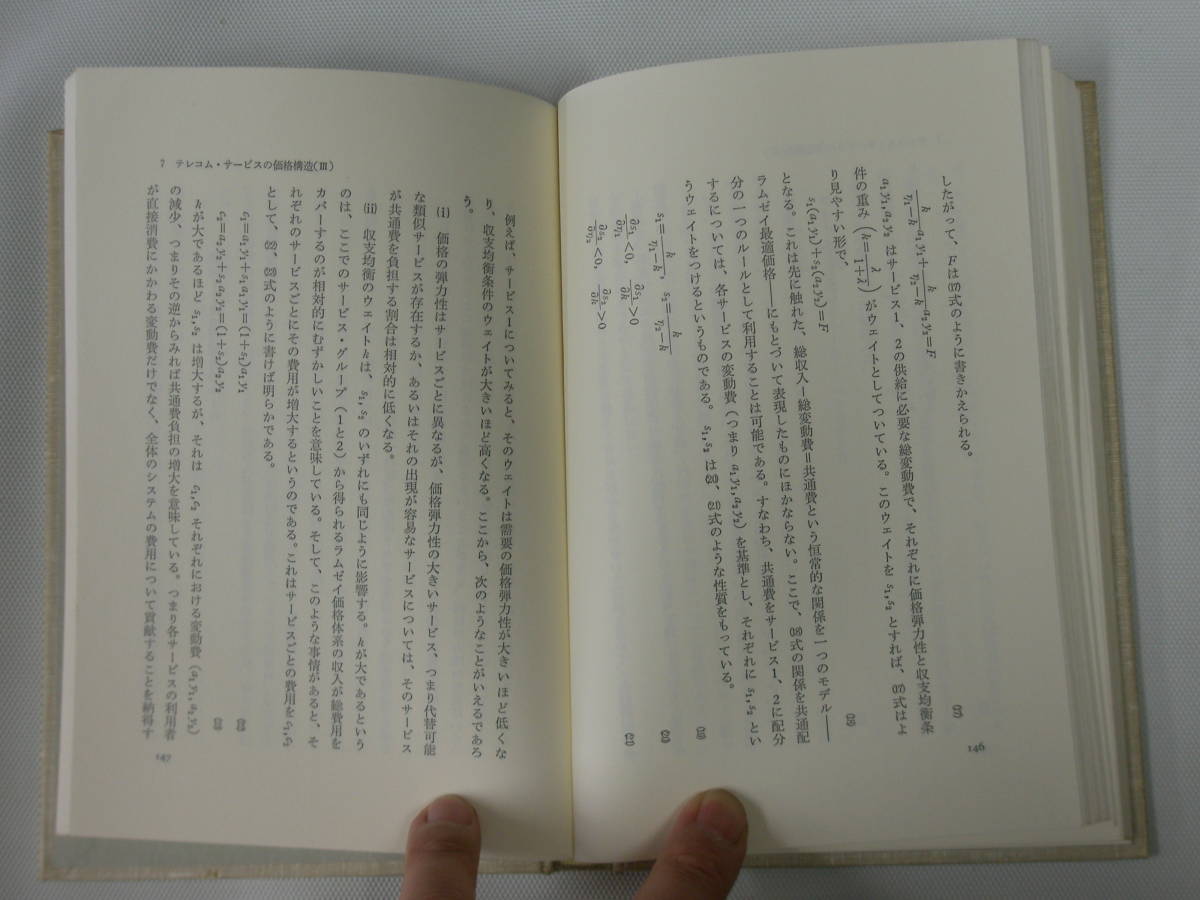 したがって、Fは⒄式のように書きかえられる。
k/(η₁−k) a₁y₁+k/(η₂−k) a₂y₂=F ⒄
a₁y₁, a₂y₂ はサービス1、2の供給に必要な総変動費で、それぞれに価格弾力性と収支均衡条
件の重み(k=λ/(1+λ))がウェイトとしてついている。このウェイトを s₁, s₂ とすれば、⒄式はよ
り見やすい形で、
s₁(a₁y₁)+s₂(a₂y₂)=F ⒅
となる。これは先に触れた、総収入−総変動費=共通費という恒常的な関係を一つのモデル——
ラムゼイ最適価格——にもとづいて表現したものにほかならない。ここで、⒅式の関係を共通配
分の一つのルールとして利用することは可能である。すなわち、共通費をサービス1、2に配分
するについては、各サービスの変動費(つまり a₁y₁, a₂y₂)を基準とし、それぞれに s₁, s₂ とい
うウェイトをつけるというものである。s₁, s₂ は⒇、(21)式のような性質をもっている。
s₁=k/(η₁−k), s₂=k/(η₂−k) ⒆
∂s₁/∂η₁<0, ∂s₁/∂k>0 ⒇
∂s₂/∂η₂<0, ∂s₂/∂k>0 (21)
146
7 テレコム・サービスの価格構造(Ⅲ)
例えば、サービス1についてみると、そのウェイトは需要の価格弾力性が大きいほど低くな
り、収支均衡条件のウェイトが大きいほど高くなる。ここから、次のようなことがいえるであろ
う。
(i) 価格の弾力性はサービスごとに異なるが、価格弾力性の大きいサービス、つまり代替可能
な類似サービスが存在するか、あるいはそれの出現が容易なサービスについては、そのサービス
が共通費を負担する割合は相対的に低くなる。
(ii) 収支均衡のウェイトkは、s₁, s₂ のいずれにも同じように影響する。kが大であるという
のは、ここでのサービス・グループ(1と2)から得られるラムゼイ価格体系の収入が総費用を
カバーするのが相対的にむずかしいことを意味している。そして、このような事情があると、そ
れぞれのサービスごとにその費用が増大するというのである。これはサービスごとの費用を c₁, c₂
として、(22)、(23)式のように書けば明らかである。
c₁=a₁y₁+s₁a₁y₁=(1+s₁)a₁y₁ (22)
c₂=a₂y₂+s₂a₂y₂=(1+s₂)a₂y₂ (23)
kが大であるほど s₁, s₂ は増大するが、それは c₁, c₂ それぞれにおける変動費(a₁y₁, a₂y₂)
の減少、つまりその逆からみれば共通費負担の増大を意味している。つまり各サービスの利用者
が直接消費にかかわる変動費だけでなく、全体のシステムの費用について貢献することを納得す
147